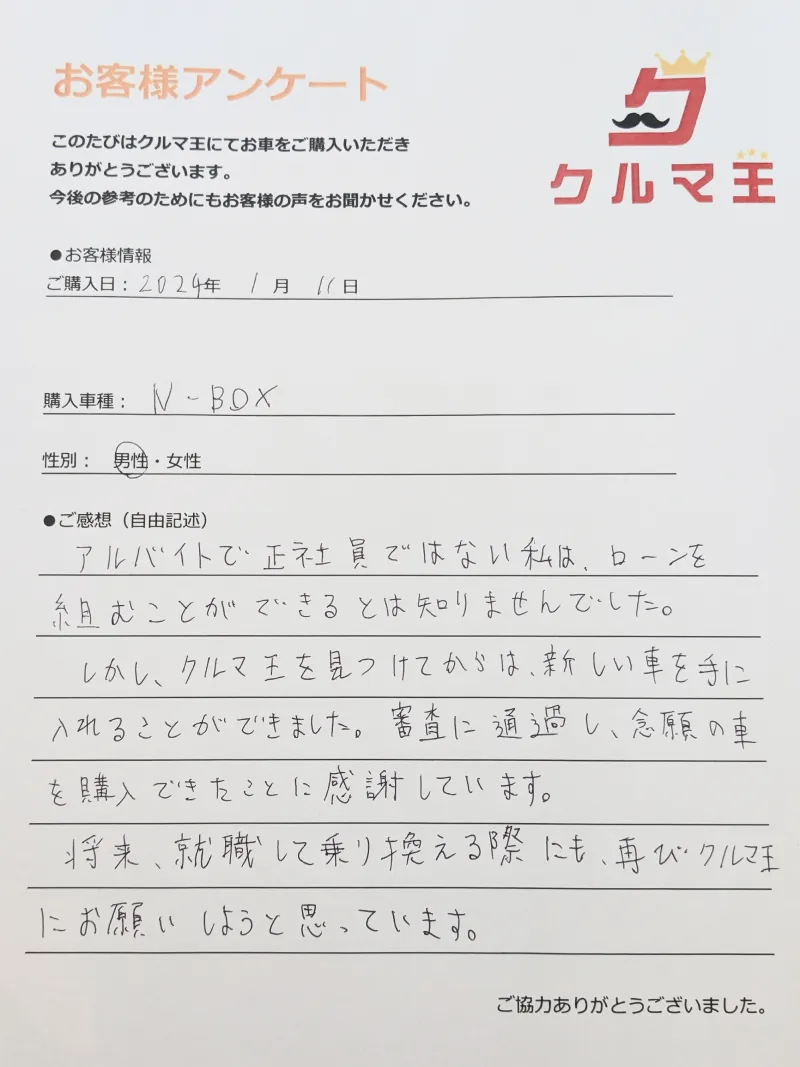 お客様アンケート
クルマ王
このたびはクルマ王にてお車をご購入いただき
ありがとうございます。
今後の参考のためにもお客様の声をお聞かせください。
●お客様情報
ご購入日：2024年 1月 11日
購入車種： N-BOX
性別： 男性・女性
●ご感想（自由記述）
アルバイトで正社員ではない私は、ローンを
組むことができるとは知りませんでした。
しかし、クルマ王を見つけてからは、新しい車を手に
入れることができました。審査に通過し、念願の車
を購入できたことに感謝しています。
将来、就職して乗り換える際にも、再びクルマ王
にお願いしようと思っています。
ご協力ありがとうございました。